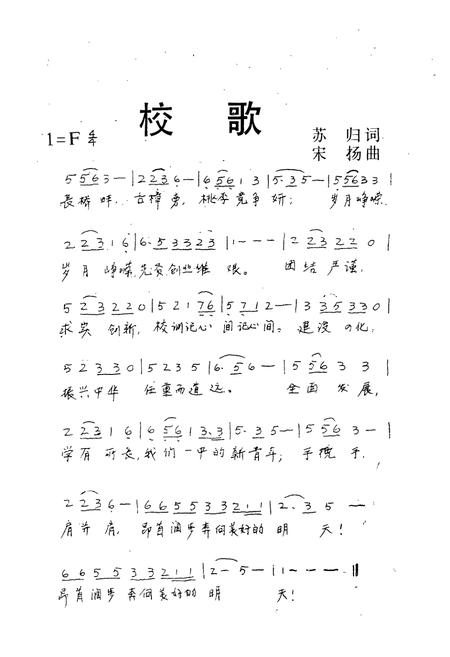 校 歌
1=F 4/4
苏 归词
宋 扬曲
5 5 6 3 — | 2 2 3 6 — | 6 5 6 1 3 | 5 · 3 5 — | 5 5 6 3 3 |
长桥畔, 古樟旁, 桃李竞争妍; 岁月峥嵘,
2 2 3 1 6 | 6 · 5 3 3 2 3 | 1 — — — | 2 2 3 2 2 0 |
岁月 峥嵘先贤创业维 艰。 团结 严谨,
5 2 3 2 2 0 | 5 2 1 7 6 | 5 7 1 2 — | 3 3 5 3 3 0 |
求实 创新, 校训记心 间记心间。 化,
5 2 3 3 0 | 5 2 3 5 | 6 · 5 6 — | 5 5 6 3 3 |
振兴中华 任重而道 远。 全面 发 展,
2 2 3 1 6 | 6 5 6 1 3 · 3 | 5 · 3 5 — | 5 5 6 3 — |
学有 所长,我们一中的新青年; 手挽 手,
2 2 3 6 — | 6 6 5 5 3 3 2 1 1 | 2 · 3 5 — |
肩并 肩, 昂首阔步奔向美好的 明 天!
6 6 5 5 3 3 2 1 1 | 2 — 5 — | 1 — — — ‖
昂首阔步 奔向美好的 明 天!